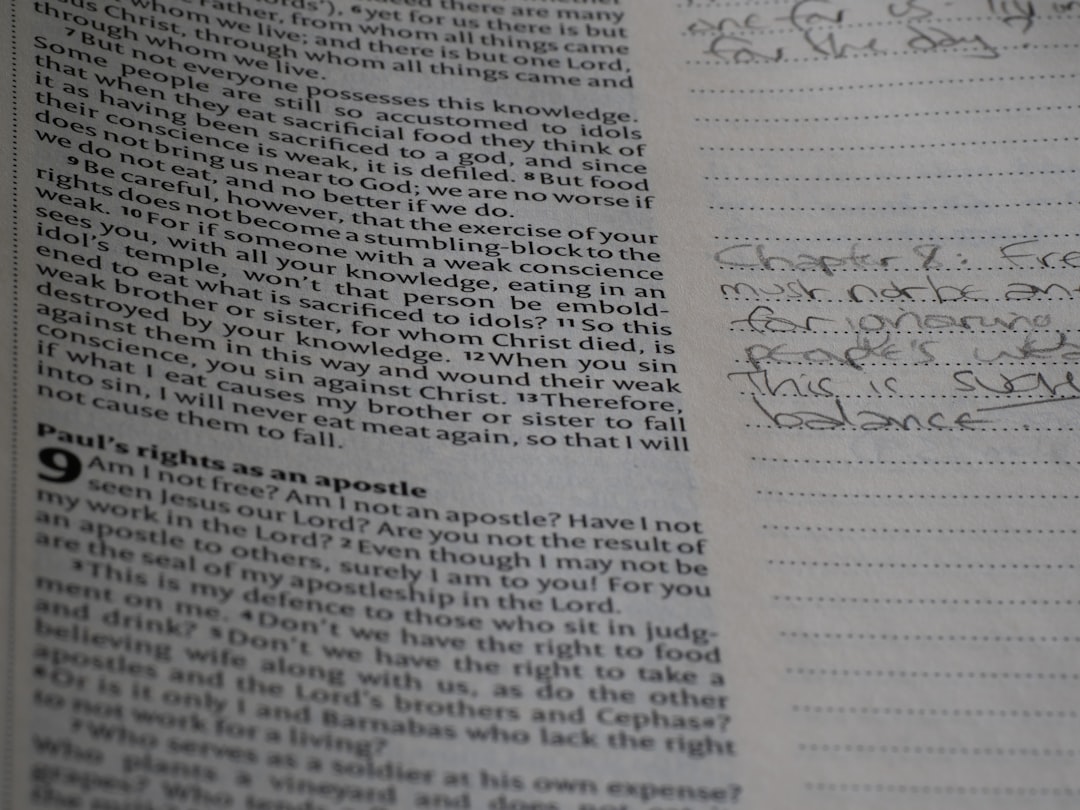 there are many
yet for us there is but
Father, from whom all things came
whom we live; and there is but one Lord,
Christ, through whom all things came and
through whom we live.
7 But not everyone possesses this knowledge.
Some people are still so accustomed to idols
that when they eat sacrificial food they think of
it as having been sacrificed to a god, and since
their conscience is weak, it is defiled. 8 But food
does not bring us near to God; we are no worse if
we do not eat, and no better if we do.
9 Be careful, however, that the exercise of your
rights does not become a stumbling-block to the
weak. 10 For if someone with a weak conscience
sees you, with all your knowledge, eating in an
idol's temple, won't that person be embold-
ened to eat what is sacrificed to idols? 11 So this
weak brother or sister, for whom Christ died, is
destroyed by your knowledge. 12 When you sin
against them in this way and wound their weak
conscience, you sin against Christ. 13 Therefore,
if what I eat causes my brother or sister to fall
into sin, I will never eat meat again, so that I will
not cause them to fall.
Paul's rights as an apostle
9 Am I not free? Am I not an apostle? Have I not
seen Jesus our Lord? Are you not the result of
my work in the Lord? 2 Even though I may not be
an apostle to others, surely I am to you! For you
are the seal of my apostleship in the Lord.
3 This is my defence to those who sit in judg-
ment on me. 4 Don't we have the right to food
and drink? 5 Don't we have the right to take a
believing wife along with us, as do the other
apostles and the Lord's brothers and Cephas a?
6 Or is it only I and Barnabas who lack the right
to not work for a living?
7 Who serves as a soldier at his own expense?
Who plants a vineyard and does not
grapes? Who
for the day
Chapter 8:
must not be
for ignoring
people's
This is such
balance